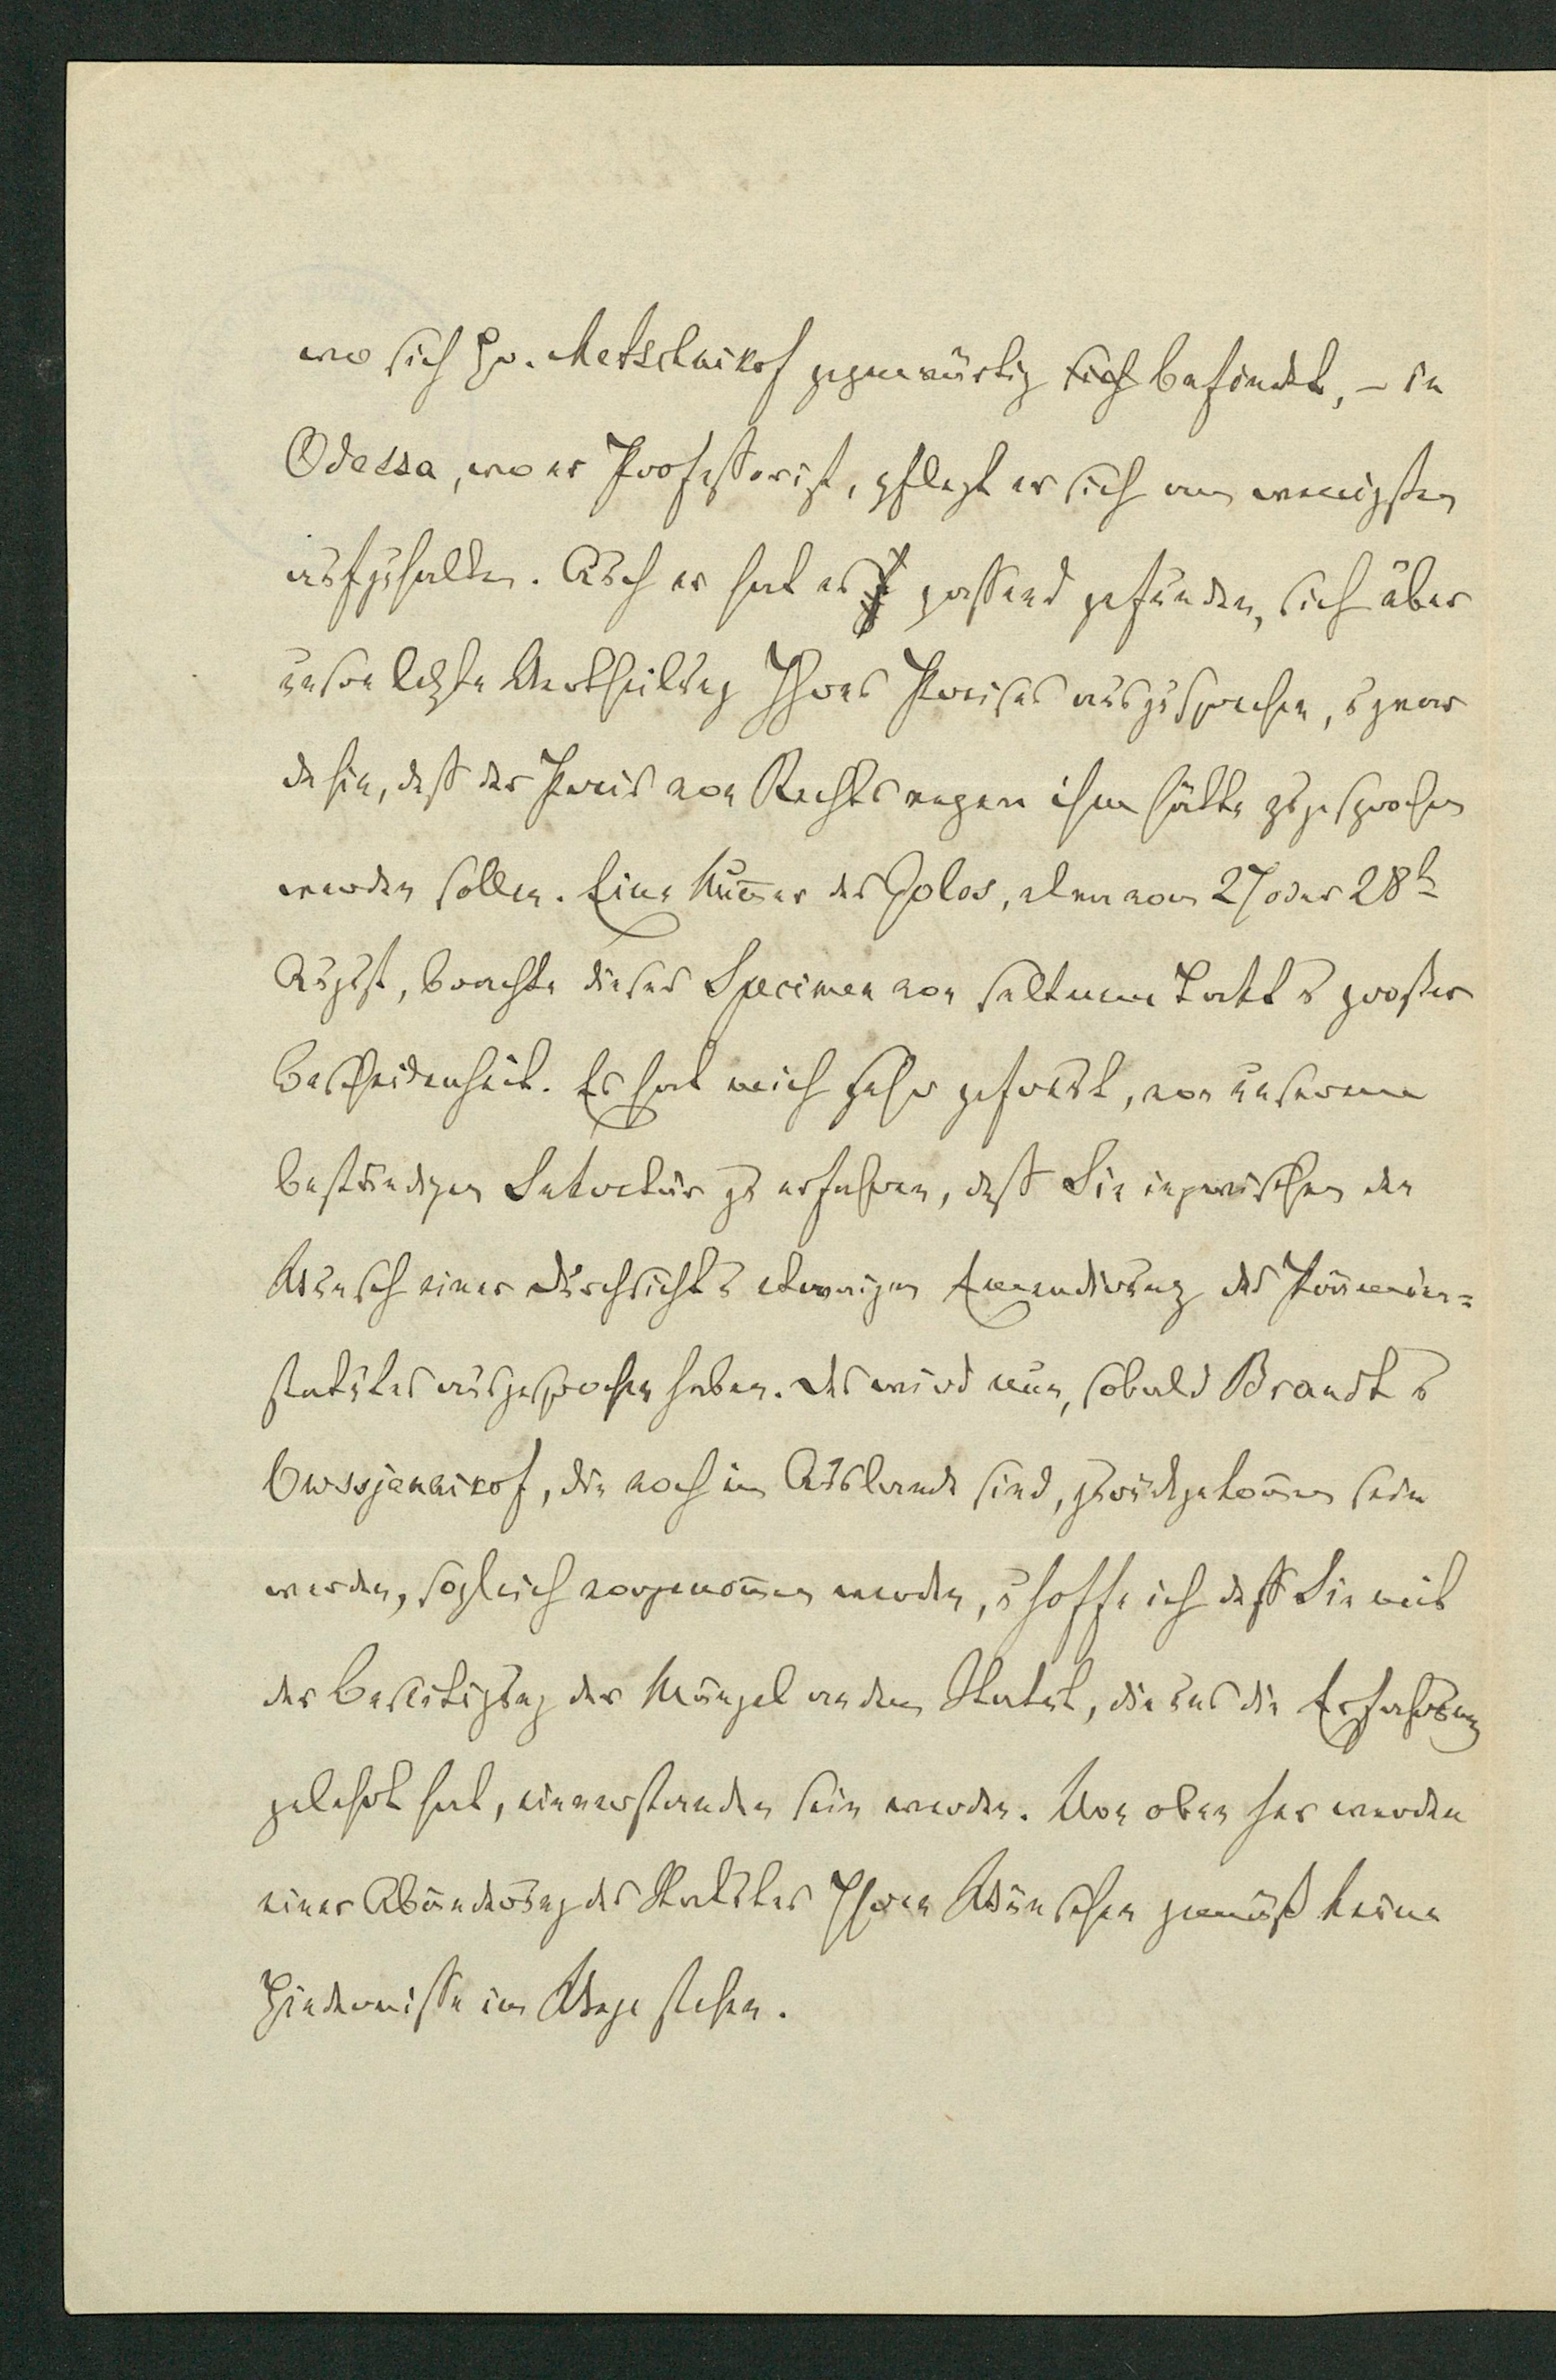 wo sich Hr. Metschnikof gegenwärtig sich befindet, – in
Odessa, wo er Professor ist, pflegt er sich am wenigsten
aufzuhalten. Auch er hat es passend gefunden, sich über
unsre letzte Vertheilung Ihres Preises auszusprechen, u zwar
dahin, daß der Preis von Rechtswegen ihm hätte zugesprochen
werden sollen. Eine Num̅er des Golos, vom 27 oder 28t
August, brachte dieses Specimen von seltenem Takt u großer
Bescheidenheit. Es hat mich sehr gefreut, von unserem
beständigen Sekretär zu erfahren, daß Sie inzwischen den
Wunsch einer Durchsicht u etwaigen Emendirung des Prämien=
statutes ausgesprochen haben. Das wird nun, sobald Brandt u
Owssjannikof, die noch im Auslande sind, zurückgekom̅en sein
werden, sogleich vorgenom̅en werden, u hoffe ich daß Sie mit
der Beseitigung der Mängel an dem Statut, die uns die Erfahrung
gelehrt hat, einverstanden sein werden. Von oben her werden
einer Abänderung des Statutes Ihren Wünschen gemäß keine
Hindernisse im Wege stehen.